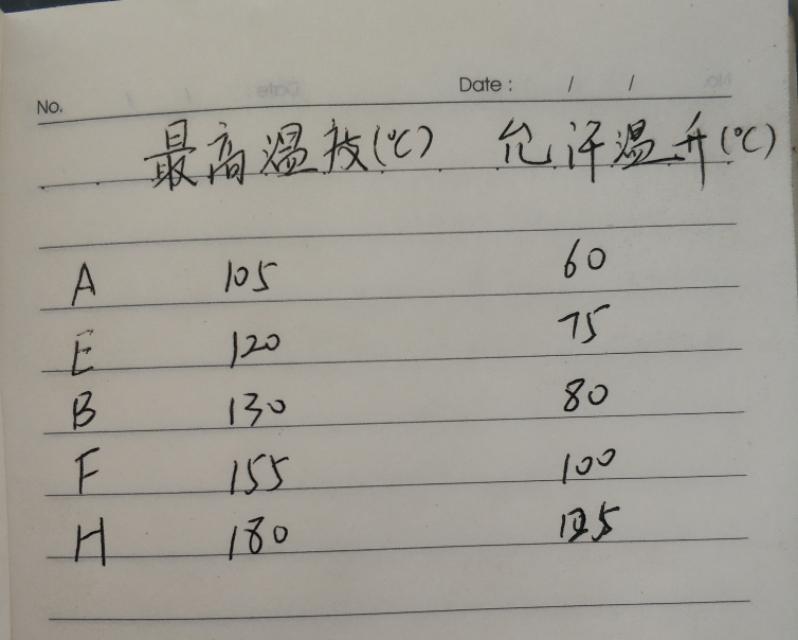 No. Date : / /
最高温度(℃) 允许温升(℃)
A 105 60
E 120 75
B 130 80
F 155 100
H 180 125